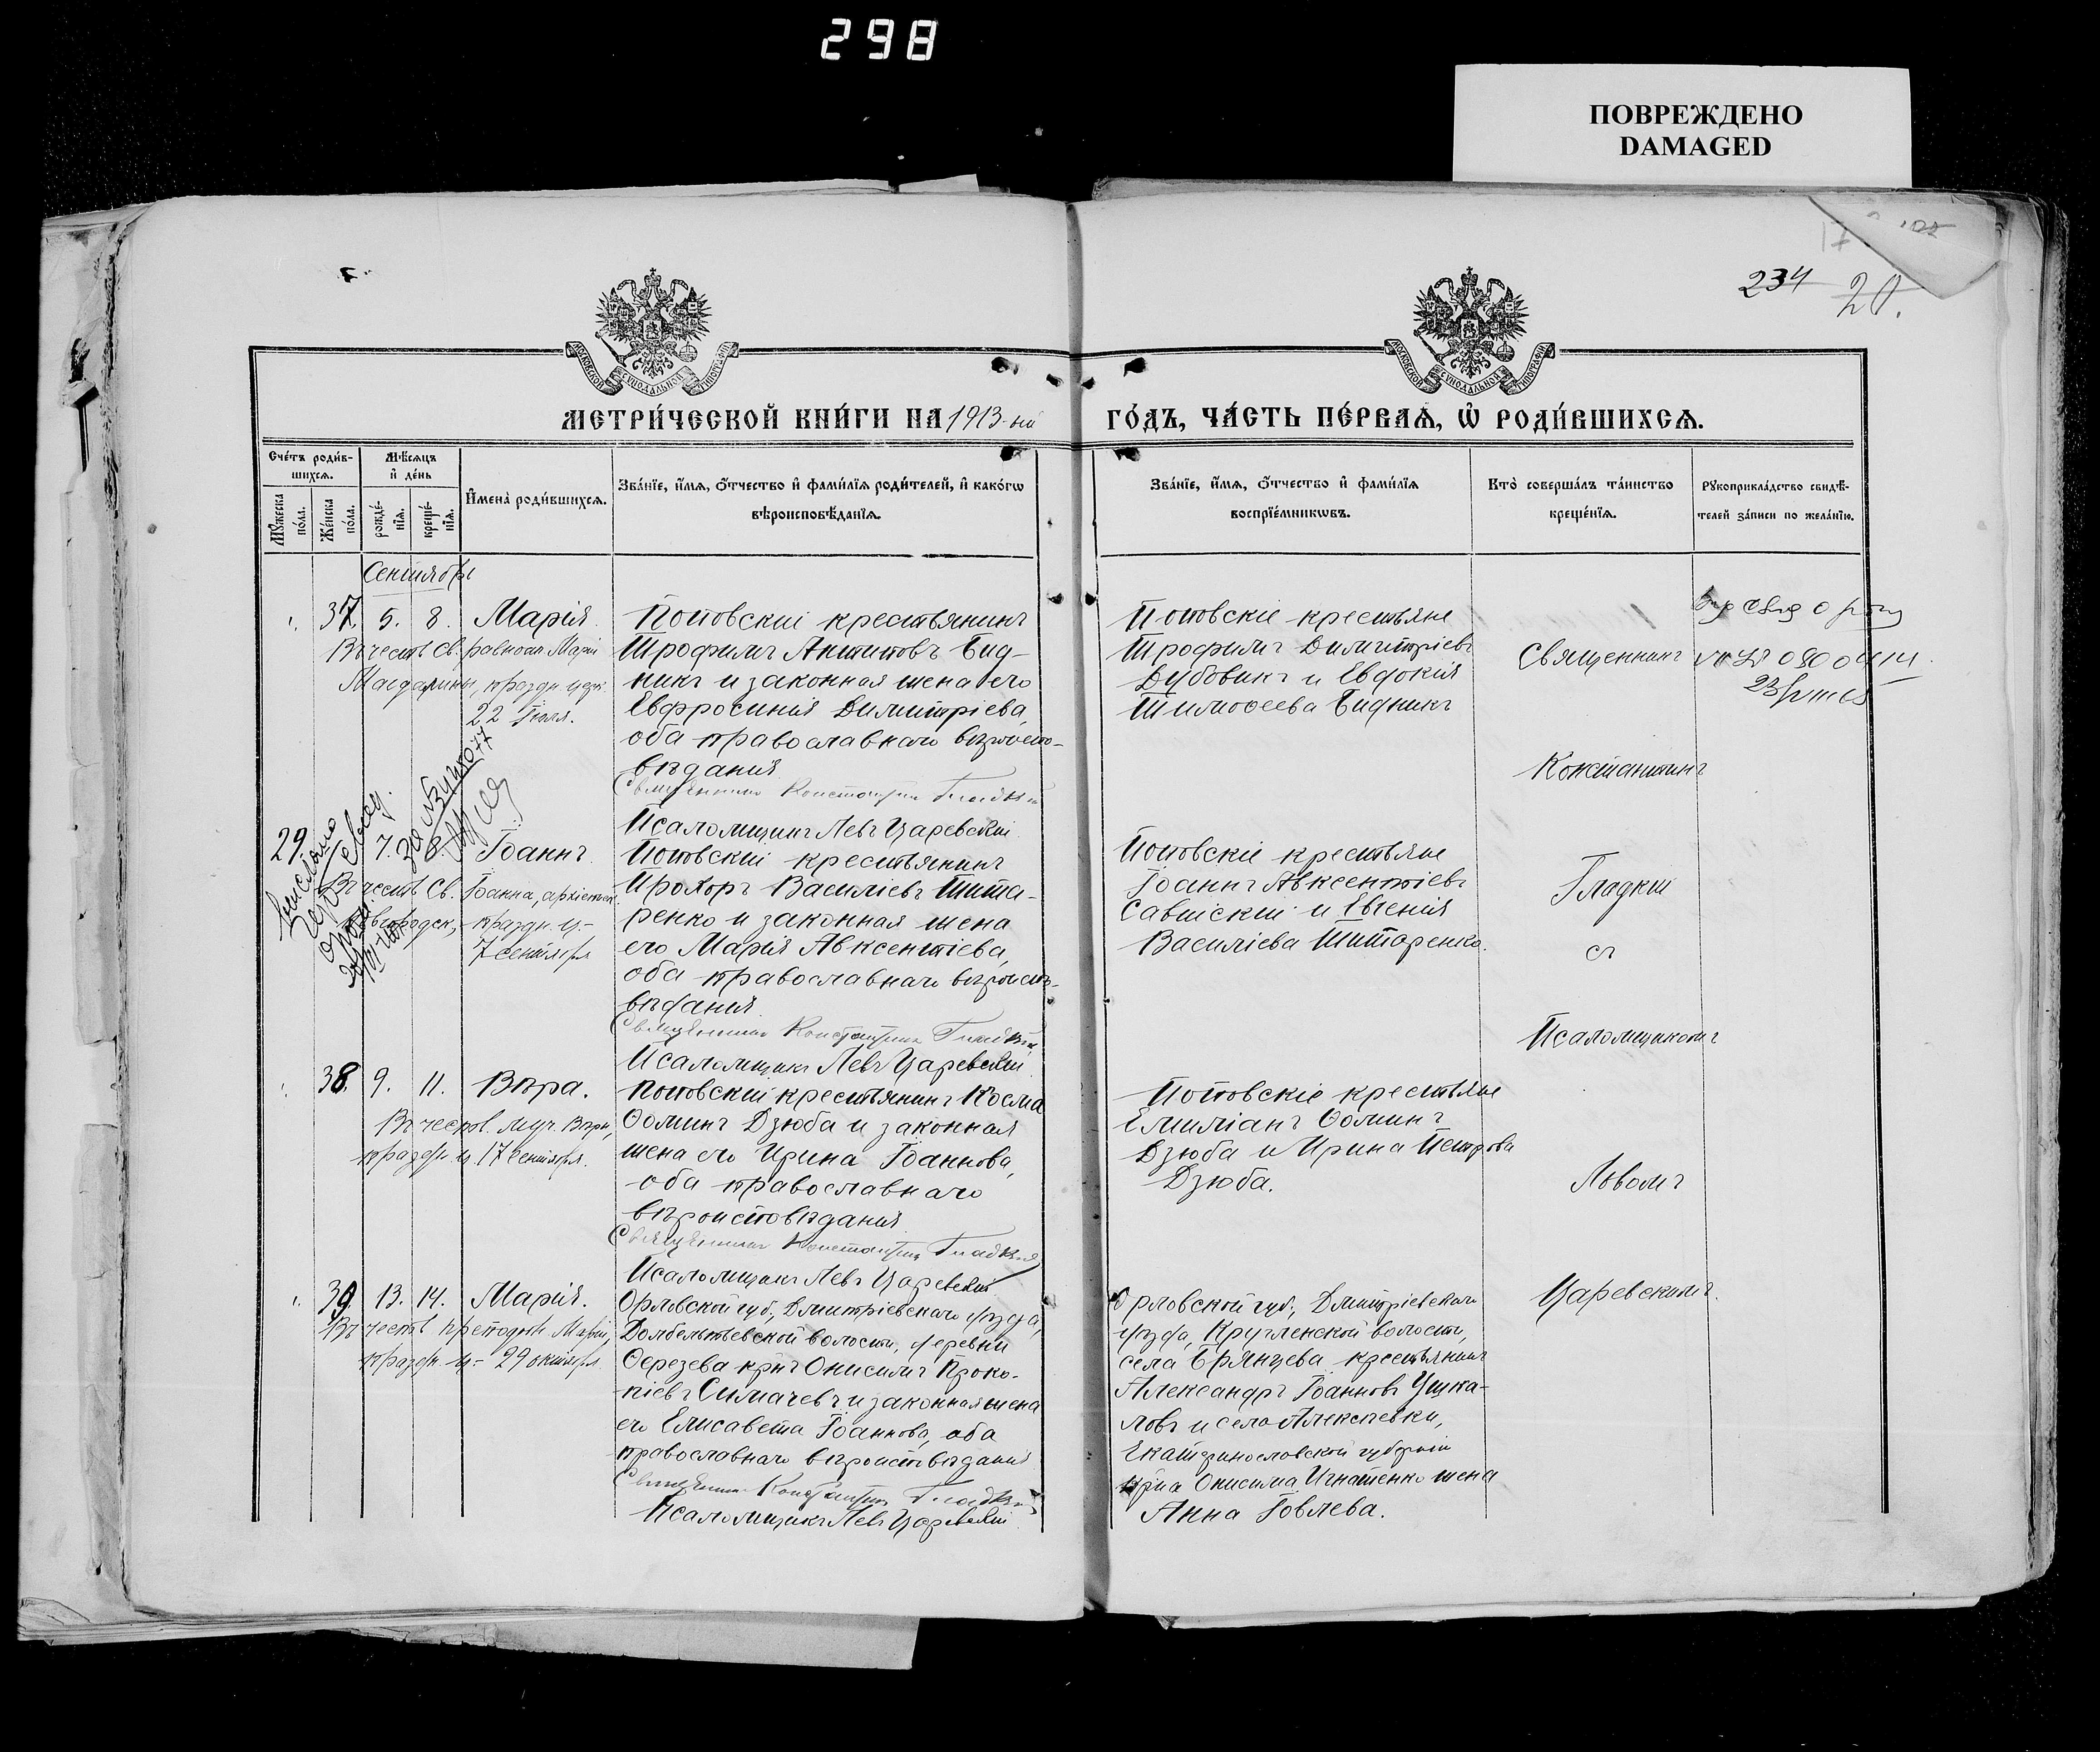 298
ПОВРЕЖДЕНО
DAMAGED
234
20.
МОСКОВСКОЙ СѴНОДАЛЬНОЙ ТИПОГРАФІИ
МОСКОВСКОЙ СѴНОДАЛЬНОЙ ТИПОГРАФІИ
МЕТРИ́ЧЕСКОЙ КНИ́ГИ НА 1913-ый ГО́ДЪ, ЧА́СТЬ ПЕ́РВАѦ, Ѡ҆ РОДИ́ВШИХСѦ.
Сче́тъ роди́в-
шихсѧ.
Мꙋ́жеска по́ла.
Же́нска по́ла.
Мѣ́сѧцъ
и҆ де́нь
рожде́-
нїѧ.
креще́-
нїѧ.
И҆мена̀ роди́вшихсѧ.
Зва́нїе, и҆́мѧ, ѻ҆́тчество и҆ фами́лїѧ роди́телей, и҆ како́гѡ
вѣроисповѣ́данїѧ.
Зва́нїе, и҆́мѧ, ѻ҆́тчество и҆ фами́лїѧ
воспрїе́мникѡвъ.
Кто̀ соверша́лъ та́инство
креще́нїѧ.
Рꙋкоприкла́дство свидѣ́-
телей за́писи по жела́нїю.
Сентябрь
37. 5. 8. Марія.
Въ честь Св. равноап. Маріи
Магдалины, праздн. церк.
22 Іюля.
Поповскій крестьянинъ
Трофимъ Антиповъ Бид-
никъ и законная жена его
Евфросинія Димитріева,
оба православнаго вѣроиспо-
вѣданія
Священникъ Константинъ Гладкій
Псаломщикъ Левъ Царевскій
Поповскіе крестьяне
Трофимъ Димитріевъ
Дубовикъ и Евдокія
Тимоѳеева Бидникъ
Священникъ
Константинъ
Гладкій
съ
Псаломщикомъ
Львомъ
Царевскимъ.
29. 7. 8. Іоаннъ.
Въ честь Св. Іоанна, архіепи.
Новгородск., праздн. ц.-
7 сентября
Поповскій крестьянинъ
Прохоръ Василіевъ Тита-
ренко и законная жена
его Марія Авксентіева,
оба православнаго вѣроиспо-
вѣданія.
Священникъ Константинъ Гладкій
Псаломщикъ Левъ Царевскій
Поповскіе крестьяне
Іоаннъ Авксентіевъ
Савитскій и Евгенія
Василіева Титаренко.
38. 9. 11. Вѣра.
Въ честь муч. Вѣры,
праздн. ц. 17 сентября.
Поповскій крестьянинъ Косма
Ѳоминъ Дзюба и законная
жена его Ирина Іоаннова,
оба православнаго
вѣроисповѣданія
Священникъ Константинъ Гладкій
Псаломщикъ Левъ Царевскій
Поповскіе крестьяне
Емиліанъ Ѳоминъ
Дзюба и Ирина Петрова
Дзюба.
39. 13. 14. Марія.
Въ честь преподобн. Маріи,
праздн. ц.- 29 октября.
Орловской губ., Дмитріевскаго уѣзда,
волости, деревни
кр-нъ Онисимъ Проко-
піевъ Симачевъ и законная жена
его Елисавета Іоаннова, оба
православнаго вѣроисповѣданія
Священникъ Константинъ Гладкій
Псаломщикъ Левъ Царевскій
Орловской губ., Дмитріевскаго
уѣзда, Кругленской волости,
села Брянцева крестьянинъ
Александръ Іоанновъ Ушка-
ловъ и села Алексѣевки,
Екатеринославской губерніи
кр-на Онисима Игнатенко жена
Анна Іовлева.